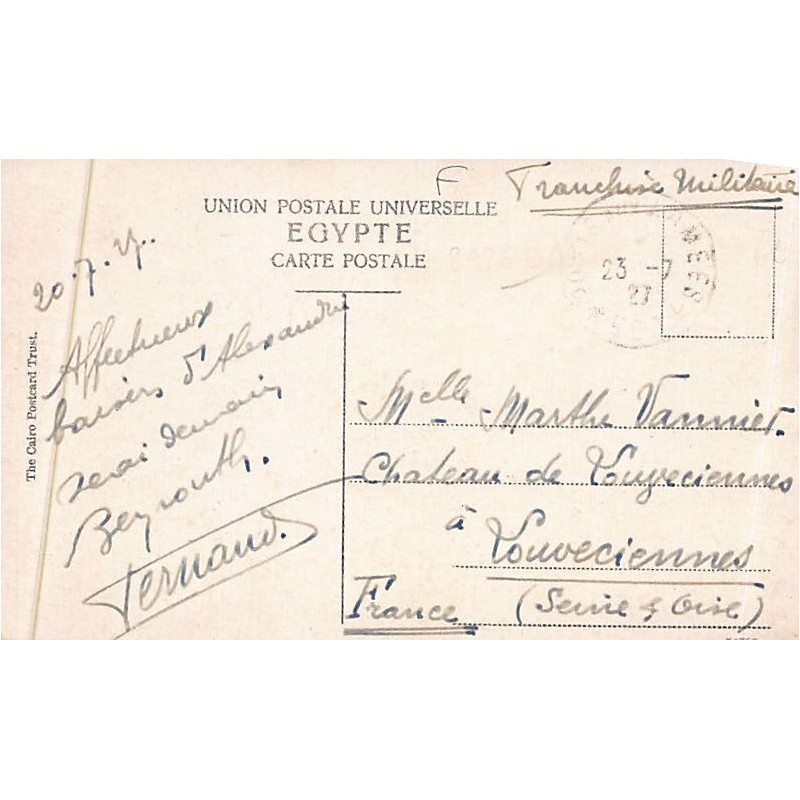 F Franchise Militaire
UNION POSTALE UNIVERSELLE
EGYPTE
CARTE POSTALE
23 -7
27
20.7.27.
Affectueux
baisers d'Alexandrie
serai demain
Beyrouth.
Fernand.
The Cairo Postcard Trust.
Melle Marthe Vannier.
Chateau de Louveciennes
à
Louveciennes
(Seine & Oise)
France